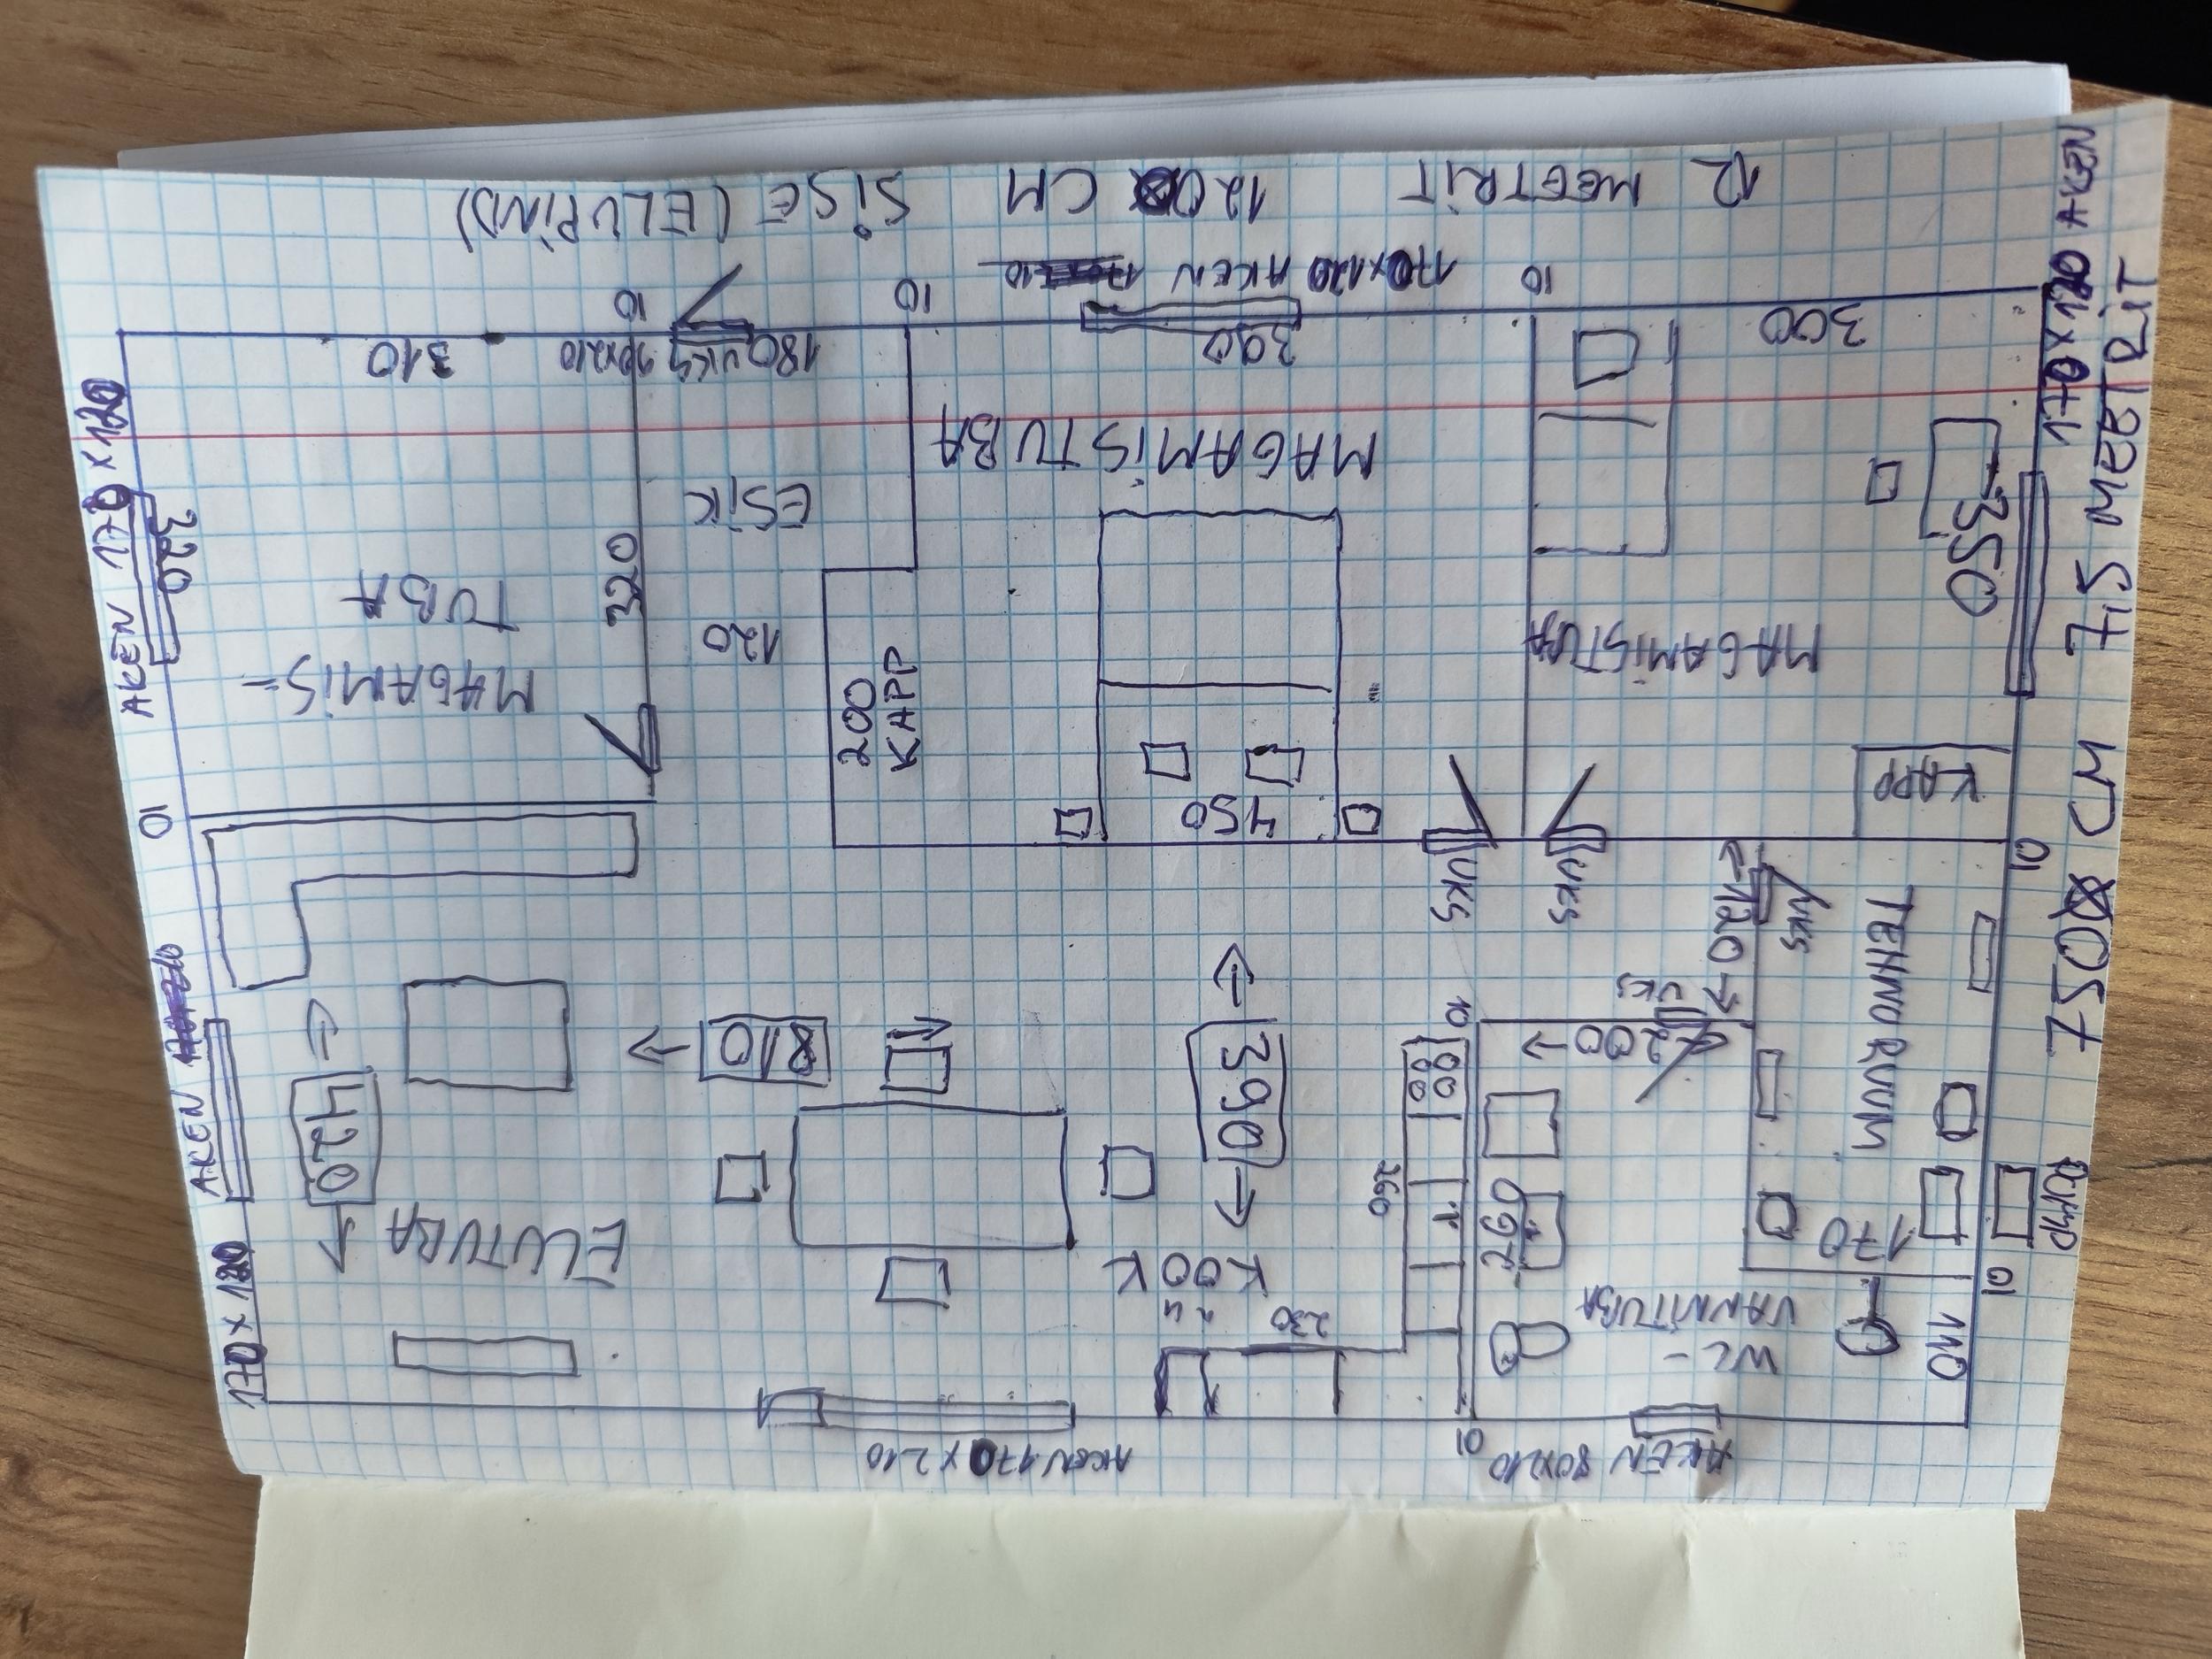 12 MEETRIT 1200 CM SISE (ELUPIND)
170x120 AKEN
10
10
10
300
390
180
UKS 90x210
310
170x120 AKEN
7,5 MEETRIT
750 CM
350
MAGAMISTUBA
MAGAMISTUBA
ESIK
120
320
MAGAMIS-
TUBA
320
AKEN 170x120
200
KAPP
450
KAPP
UKS
UKS
10
10
120
UKS
TEHNORUUM
UKS
200
10
390
810
420
AKEN
170x120
ELUTUBA
KÖÖK
260
260
T
230
170
PUMP
10
WC-
VANNITUBA
110
AKEN 80x210
10
AKEN 170x210